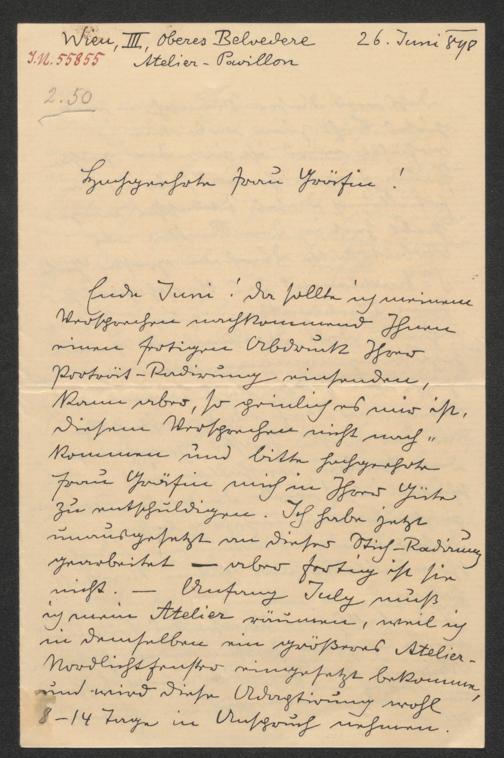 Wien, III., Oberes Belvedere 26. Juni 898
Atelier-Pavillon
I.N. 55855
2.50
Hochgeehrte Frau Gräfin!
Ende Juni! da sollte ich meinem
Versprechen nachkommend Ihnen
einen fertigen Abdruck Ihrer
Porträit-Radirung einsenden,
kann aber, so peinlich es mir ist,
diesem Versprechen nicht nach"
kommen und bitte hochgeehrte
Frau Gräfin mich in Ihrer Güte
zu entschuldigen. Ich habe jetzt
unausgesetzt an dieser Stich-Radirung
gearbeitet — aber fertig ist sie
nicht. — Anfang July muß
ich mein Atelier räumen, weil ich
in demselben ein größeres Atelier-
Nordlichtfenster eingesetzt bekomme,
und wird diese Adaptirung wohl
8-14 Tage in Anspruch nehmen.